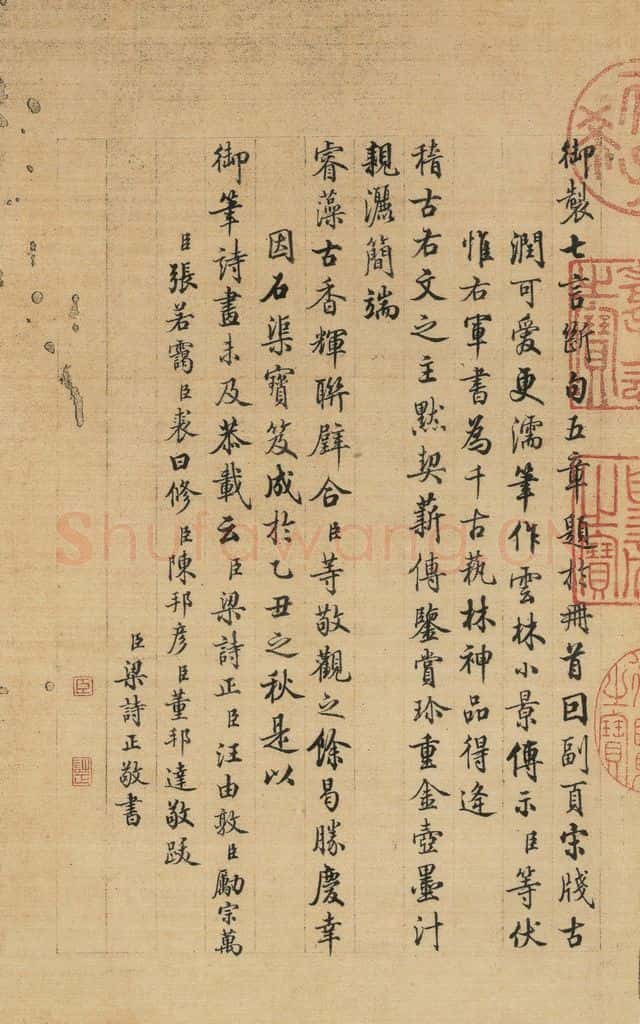 御製七言斷句五章題於冊首回副頁宋牋古
潤可愛更濡筆作雲林小景傳示臣等伏
惟右軍書為千古萟林神品得逢
稽古右文之主默契薪傳鑒賞珍重金壺墨汁
親灑簡端
睿藻古香輝聯壁合臣等敬觀之餘曷勝慶幸
因石渠寶笈成於乙丑之秋是以
御筆詩畫未及恭載云臣梁詩正臣汪由敦臣勵宗萬
臣張若靄臣裘曰修臣陳邦彥臣董邦達敬跋
臣梁詩正敬書
Shufawang.CN